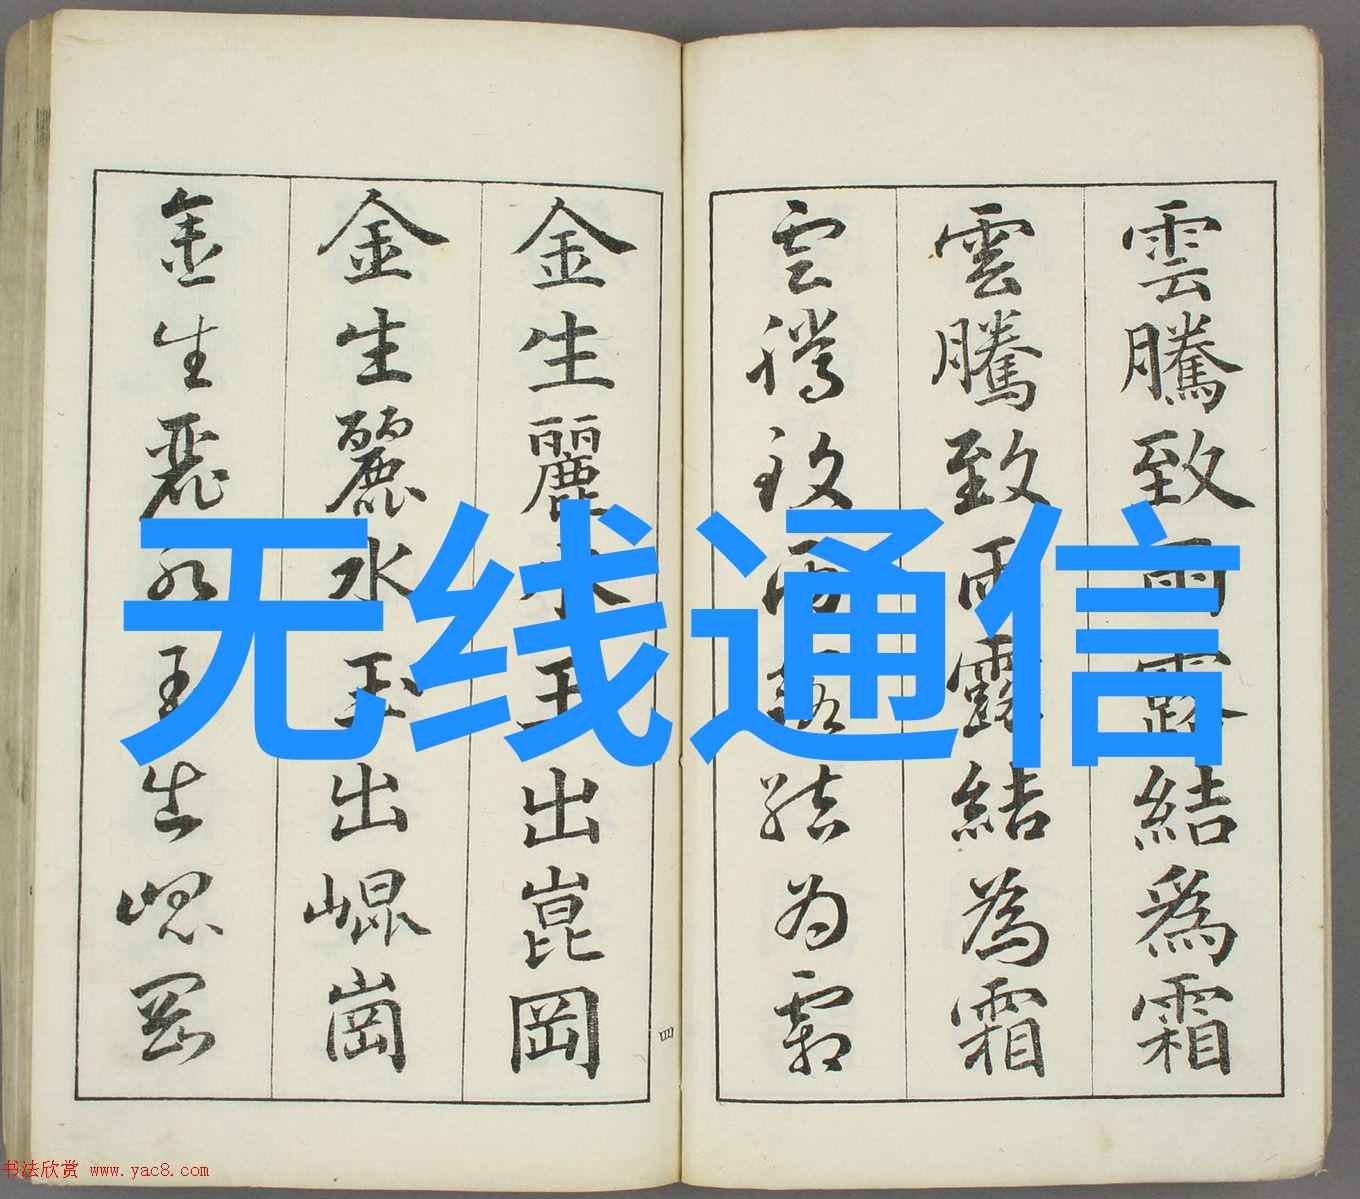 雲騰致雨露結為霜
雲騰致雨露結為霜
雲騰致雨露結为霜
四
金生麗水玉出崑岡
金生麗水玉出崐崗
金生麗水玉出崐岡
无线通信
书法欣赏 www.yac8.com